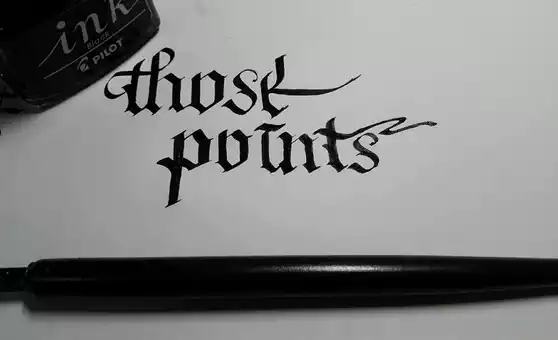 ink
Black
PILOT
those
points